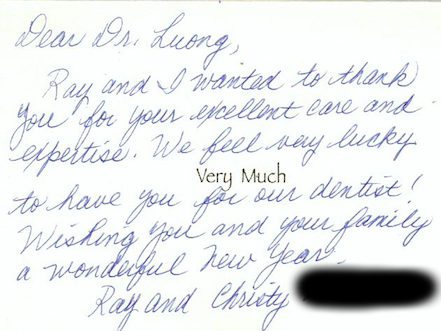 Dear Dr. Luong,
Ray and I wanted to thank
you for your excellent care and
expertise. We feel very lucky
Very Much
to have you for our dentist!
Wishing you and your family
a wonderful New Year.
Ray and Christy